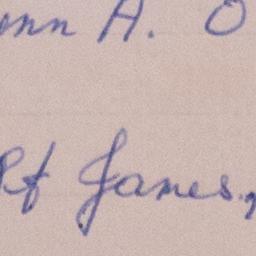 nn A. O
James,